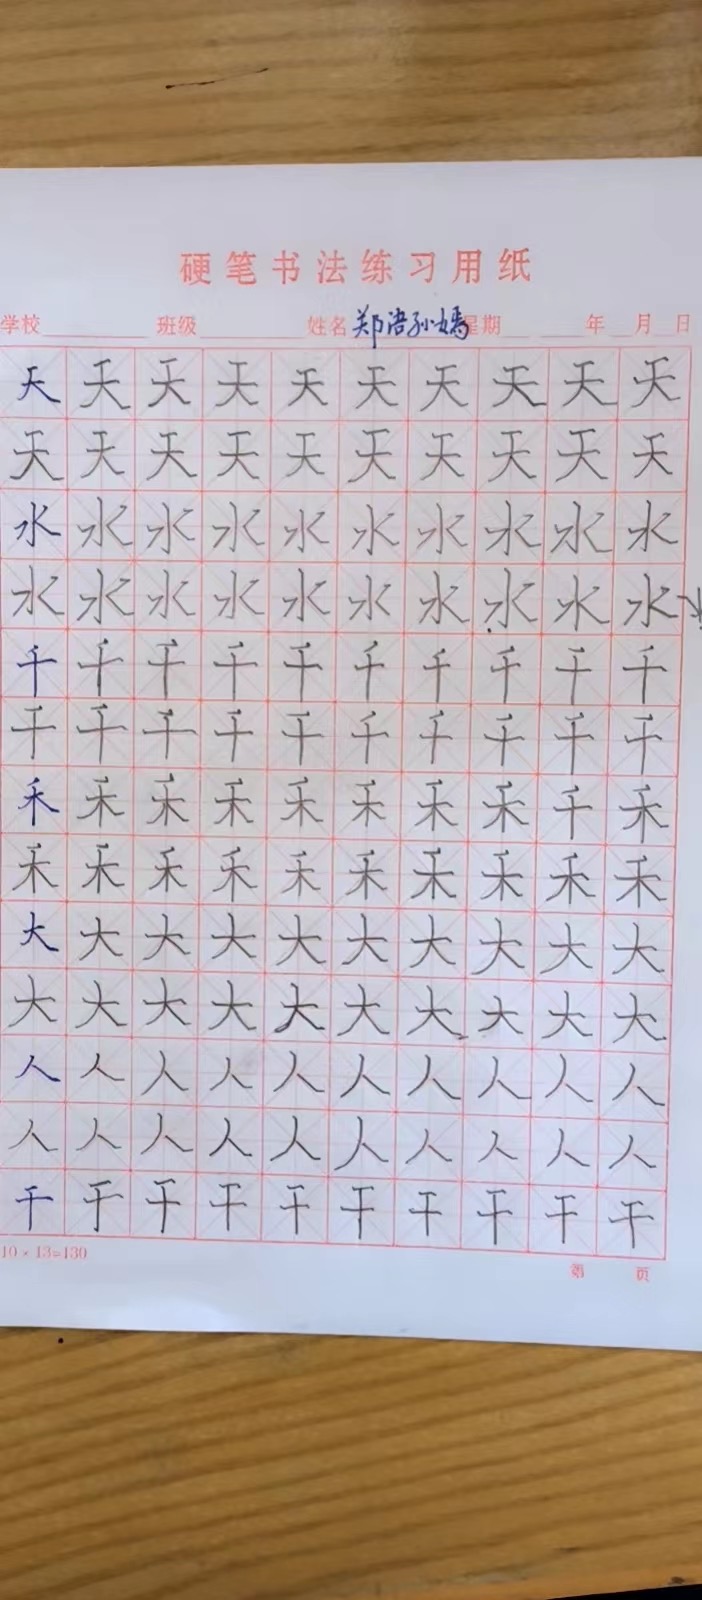 硬笔书法练习用纸
学校 班级 姓名 郑语孙嫣 星期 年 月 日
天天天天天天天天天天
天天天天天天天天天天
水水水水水水水水水水
水水水水水水水水水水
千千千千千千千千千千
千千千千千千千千千千
禾禾禾禾禾禾禾禾千禾
禾禾禾禾禾禾禾禾禾禾
大大大大大大大大大大
大大大大大大大大大大
人人人人人人人人人人
人人人人人人人人人人
干干干干干干干干干干
10×13=130
第 页